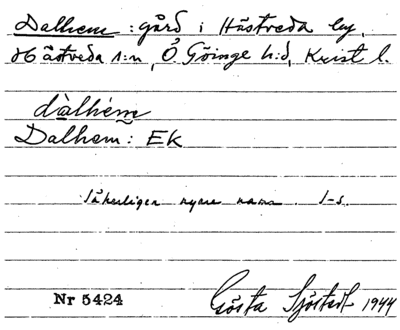 Dalhem : gård i Hästveda by,
Hästveda s:n, Ö Göinge h:d, Krist l.
dàlhém
Dalhem : EK
Säkerligen nyare namn. I-s.
Nr 5424
Gösta Sjöstedt 1944